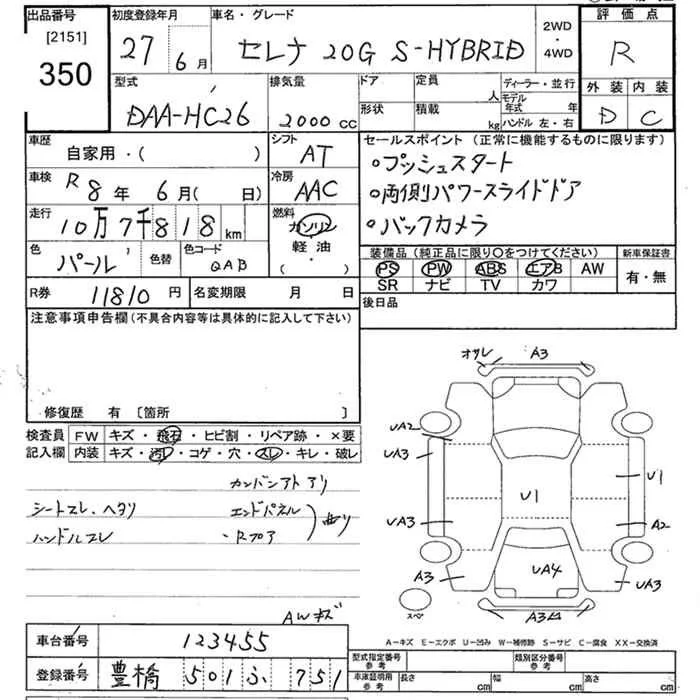 出品番号
[2151]
350
初度登録年月
27年 6月
車名・グレード
セレナ 20G S-HYBRID
2WD
・
4WD
評価点
R
外装 内装
D C
型式
DAA-HC26
排気量
2000 CC
ドア
形状
定員 人
積載 kg
ディーラー・並行
モデル年式 年
ハンドル 左・右
車歴
自家用・( )
シフト
AT
車検
R 8年 6月( 日)
冷房
AAC
走行
10万7千818 km
燃料
ガソリン
軽油
・( )
色
パール
色替
色コード
QAB
R券 11810円
名変期限 月 日
セールスポイント (正常に機能するものに限ります)
○プッシュスタート
○両側パワースライドドア
○バックカメラ
装備品 (純正品に限り○をつけてください)
PS PW ABS エアB AW
SR ナビ TV カワ
新車保証書
有・無
後日品
注意事項申告欄 (不具合内容等は具体的に記入して下さい)
修復歴 有 [箇所 ]
検査員
記入欄
FW キズ・飛石・ヒビ割・リペア跡・×要
内装 キズ・汚レ・コゲ・穴・スレ・キレ・破レ
カンバンアトアリ
シートスレ、ヘタリ
エンドパネル
ハンドルスレ
・Rフロア
曲リ
AWキズ
オサレ A3
UA2
UA3
U1
U1
UA3
A2
A3
UA4
UA3
スペア
A3△
A-キズ E-エクボ U-凹み W-補修跡 S-サビ C-腐食 XX-交換済
車台番号 123455
登録番号 豊橋 501 ふ 751
型式指定番号
参考
類別区分番号
参考
車庫証明用
参考
長さ cm
幅 cm
高さ cm